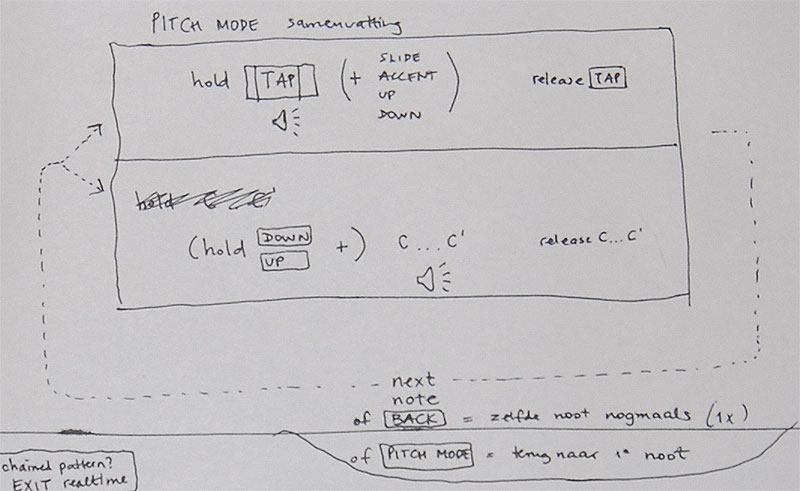 PITCH MODE samenvatting
hold TAP ( + SLIDE
ACCENT
UP
DOWN )
release TAP
(hold DOWN
UP +) C ... C'
release C...C'
next
note
of BACK = zelfde noot nogmaals (1x)
of PITCH MODE = terug naar 1e noot
chained pattern?
EXIT realtime